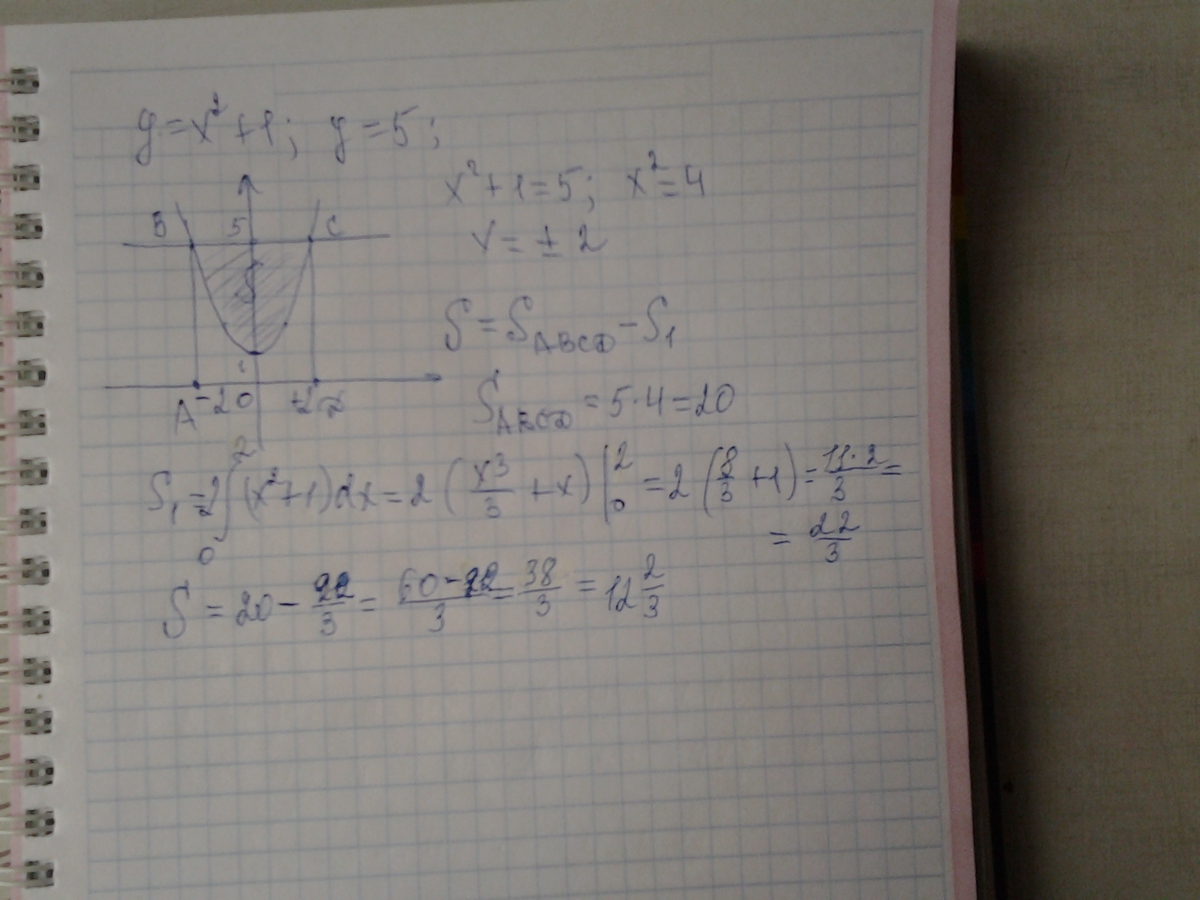 y = x² + 1; y = 5;
x² + 1 = 5; x² = 4
x = ± 2
B 5 C
S
1
A -2 0 +2 D
S = S_ABCD - S₁
S_ABCD = 5·4 = 20
S₁ = 2∫₀² (x² + 1) dx = 2 (x³/3 + x) |₀² = 2 (8/3 + 1) = 11·2/3 =
= 22/3
S = 20 - 22/3 = 60-22/3 = 38/3 = 12 2/3